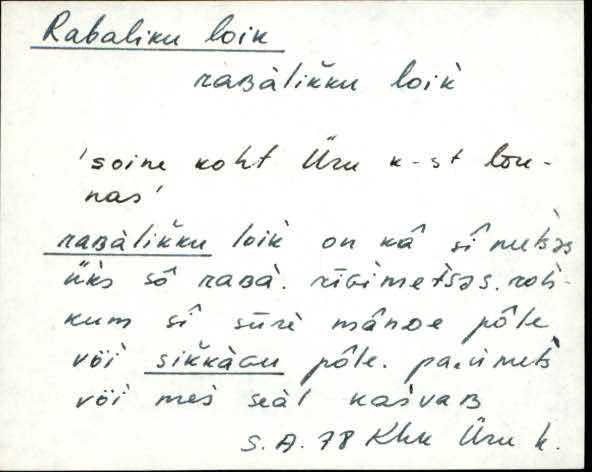 Rabaliku loik
raʙàlik̆ku loik̀
'soine koht Üru k-st lõu-
nas'
raʙàlik̆ku loik̀ on kâ sî metśəs
ük̀s sô raʙà. rīɢimetśəs. roh-
kum sî sūrè mânᴅe pôle
või sik̆kàɢu pôle. metś
või mes̀ seàl kas̀vaʙ
S.A. 78 Khk Üru k.